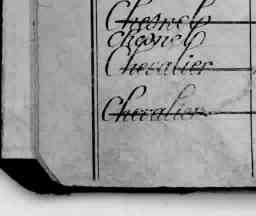 Chesnel
Chesnel
Chevalier
Chevalier